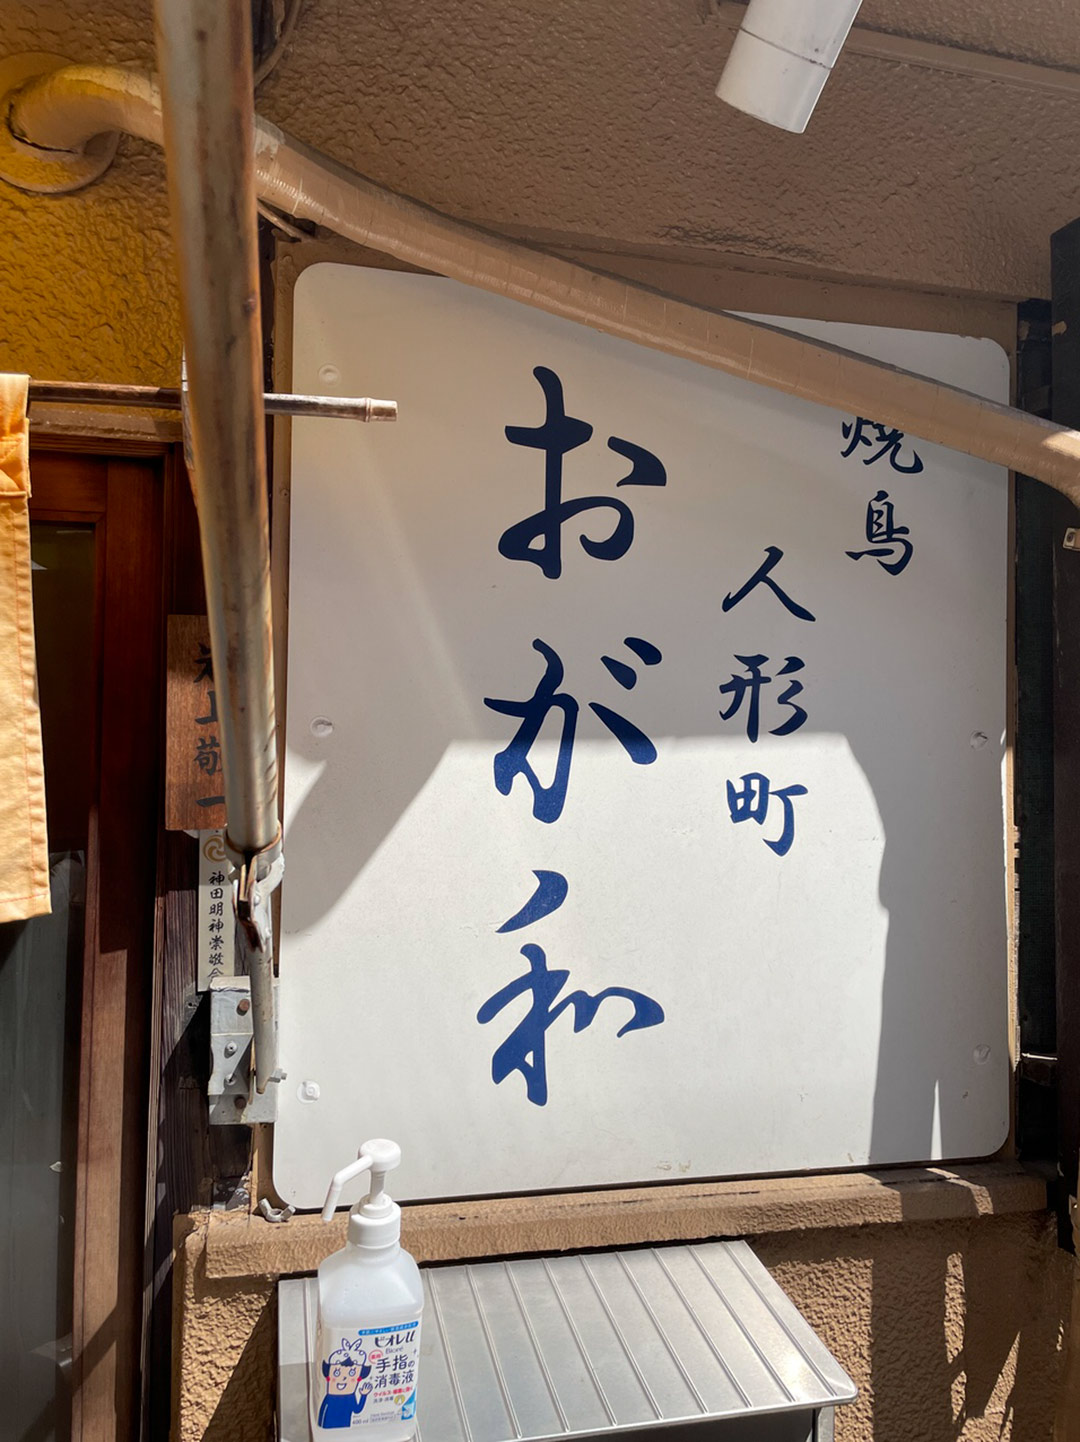 焼鳥
人形町
おが和
神田明神崇敬会
ビオレu
Bioré
手指の
消毒液